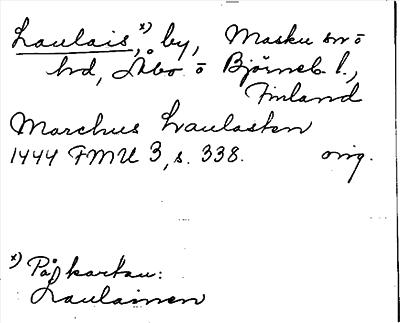 Laulais,*) by, Masku sn o
hd, Åbo o Björneb. l.,
Finland
Marchus Laulasten
1444 FMU 3, s. 338. orig.
*) På kartan:
Laulainen